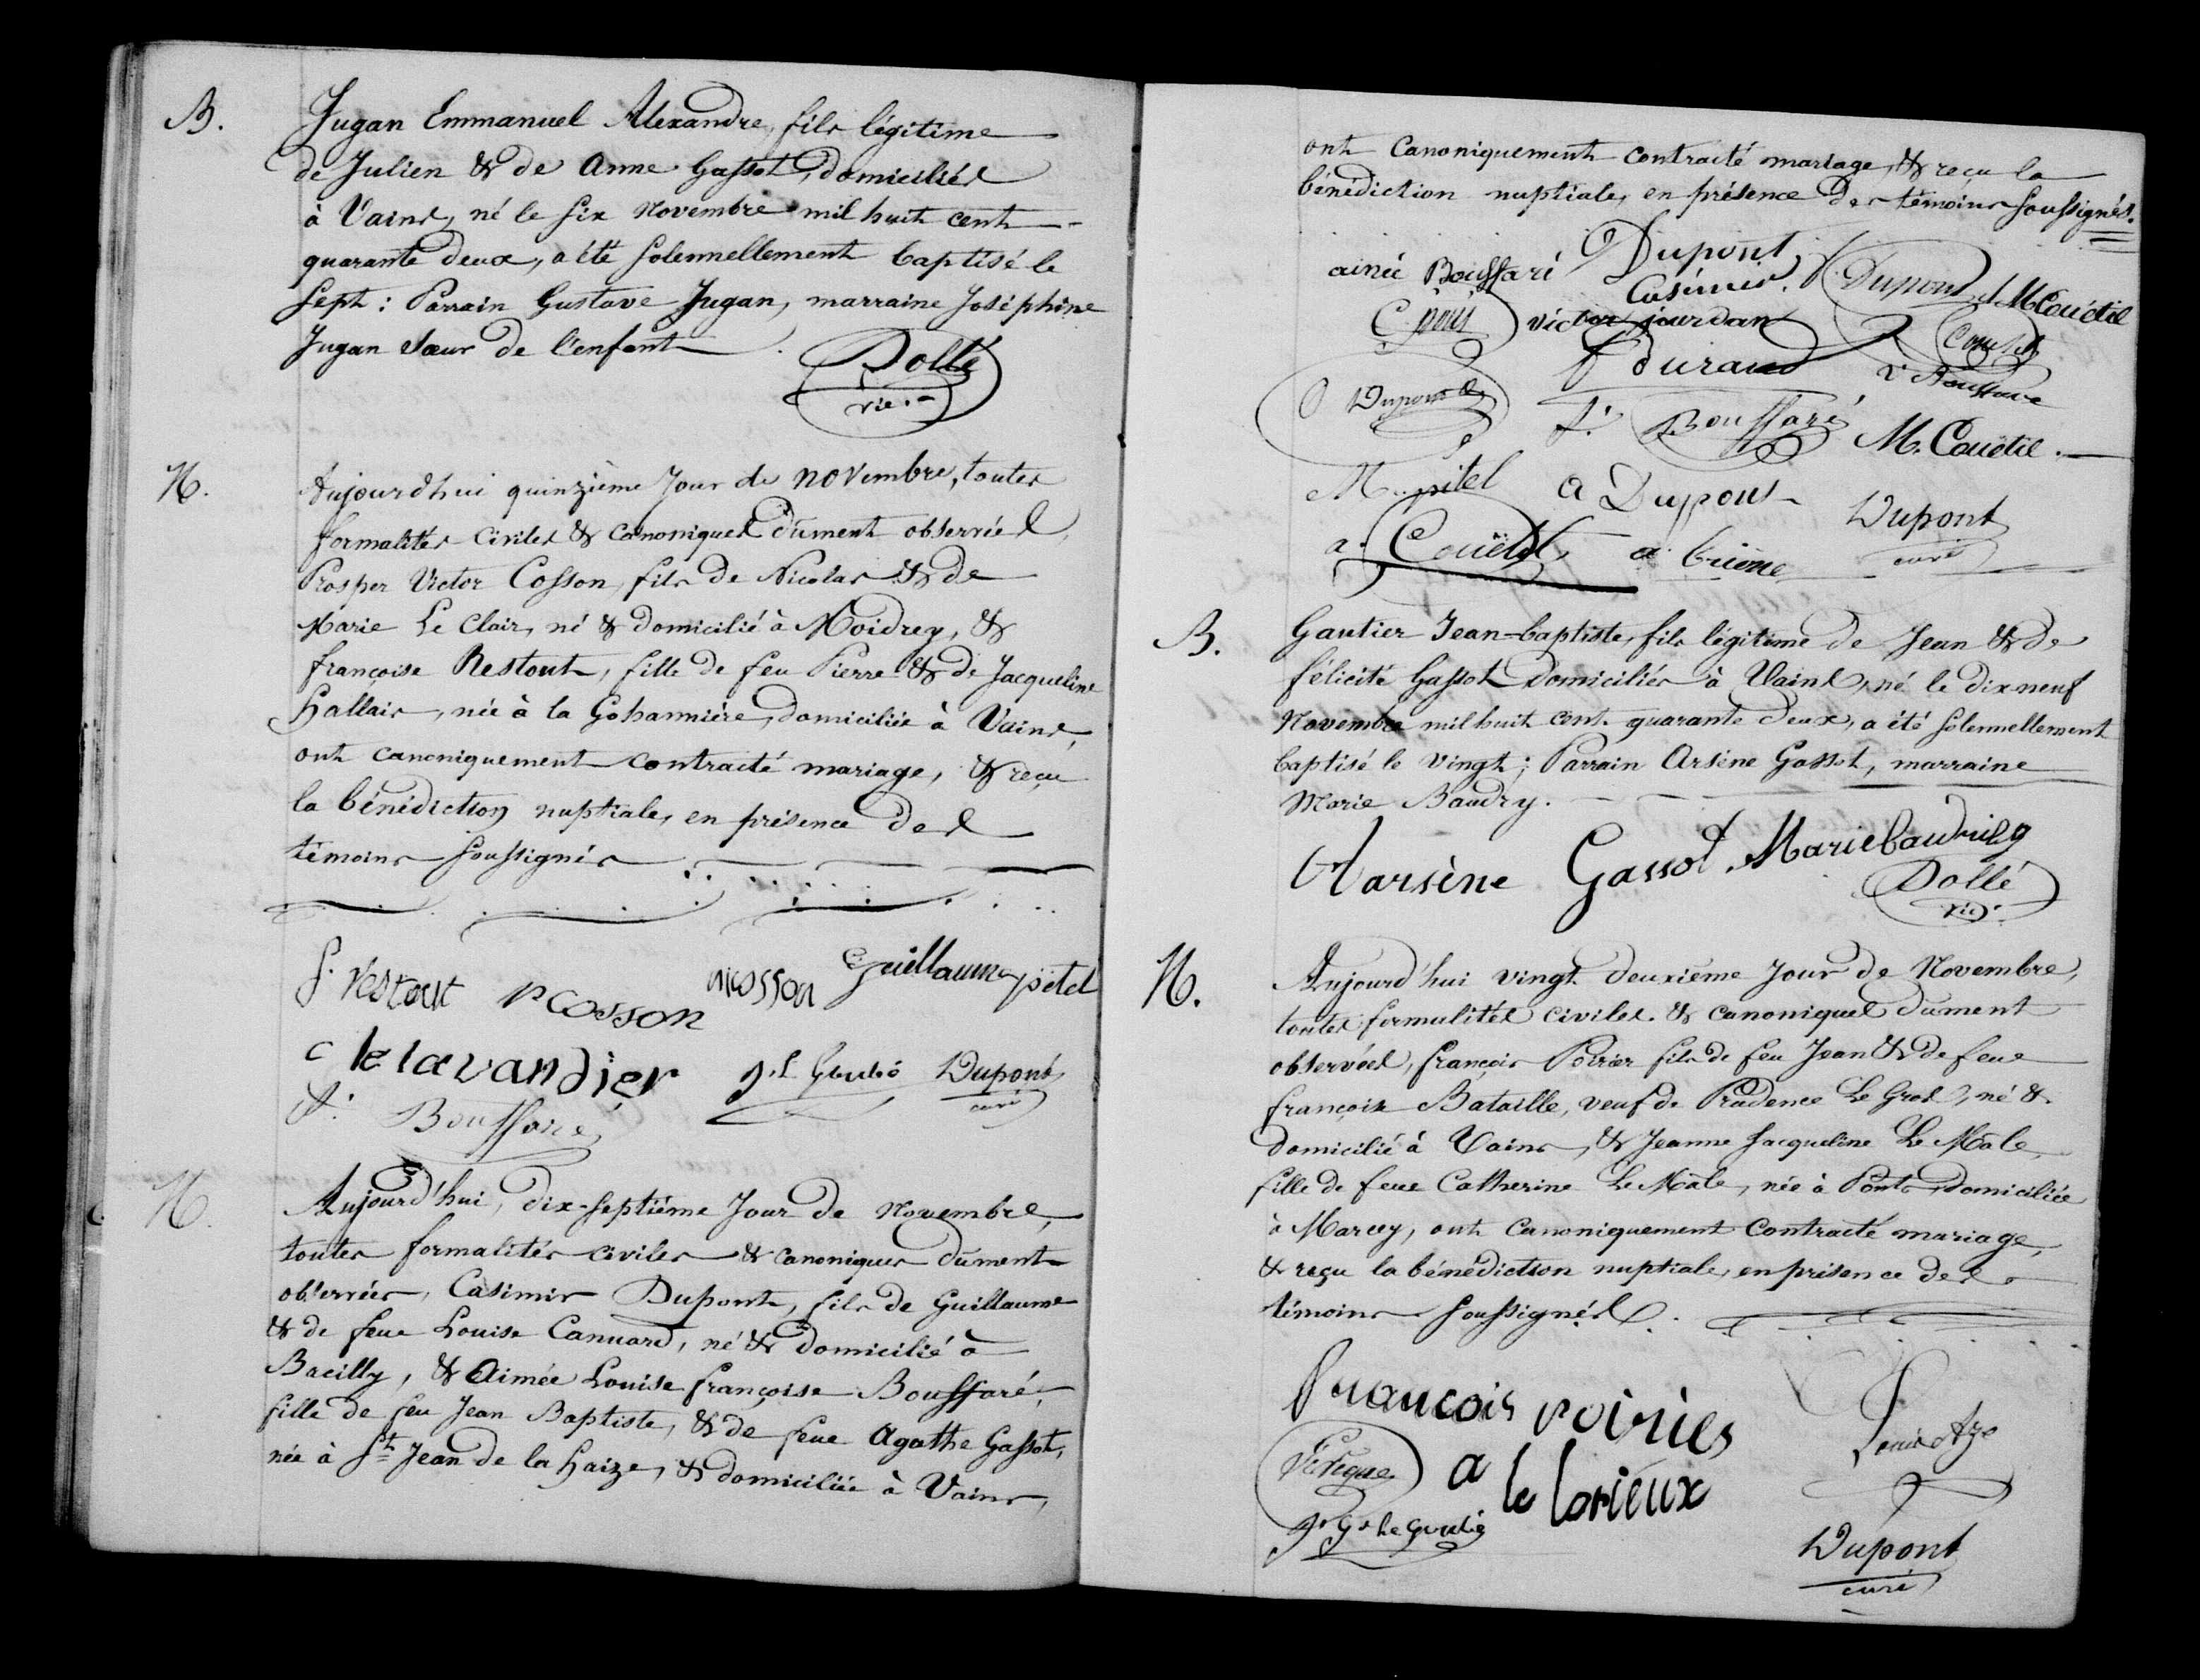 B.
Jugan Emmanuel Alexandre, fils légitime
de Julien & de Anne Gassot, domiciliés
à Vains, né le six Novembre mil huit cent
quarante deux, a été solennellement baptisé le
sept : Parrain Gustave Jugan, marraine Joséphine
Jugan sœur de l'enfant
Dollé
vic.
M.
Aujourd'hui quinzième Jour de novembre, toutes
formalités civiles & canoniques dument observées,
Prosper Victor Cosson, fils de Nicolas & de
Marie Le Clair, né & domicilié à Moidrey, &
françoise Restout, fille de feu Pierre & de Jacqueline
Hallais, née à la Gohannière, domiciliée à Vains,
ont canoniquement contracté mariage, & reçu
la bénédiction nuptiale, en présence des
témoins soussignés
f. restout p cosson n cosson Guillaume pitel
c le lavandier Dupont
curé
Bouffaré
M.
Aujourd'hui, dix-septième Jour de Novembre,
toutes formalités civiles & canoniques dument
observées, Casimir Dupont, fils de Guillaume
& de feue Louise Canuard, né & domicilié à
Bacilly, & Aimée Louise françoise Bouffaré,
fille de feu Jean Baptiste, & de feue Agathe Gassot,
née à St Jean de la haize, & domiciliée à Vains,
ont canoniquement contracté mariage, & reçu la
bénédiction nuptiale, en présence des témoins soussignés.
aimée Bouffaré Dupont Casimir. Dupont M Couétil
victor jourdan
f durand
Dupont Bouffaré M. Couétil
pitel a Dupont Dupont
curé
a. Couétil a. briône
B.
Gautier Jean-baptiste, fils légitime de Jean & de
félicité Gassot domiciliés à Vains, né le dix neuf
Novembre mil huit cent quarante deux, a été solennellement
baptisé le vingt ; Parrain Arsène Gassot, marraine
Marie Baudry.
arsène Gassot. Marie baudry
Dollé
vic.
M.
Aujourd'hui vingt deuxième Jour de Novembre,
toutes formalités civiles & canoniques dument
observées, françois Poirier fils de feu Jean & de feue
françoise Bataille, veuf de Prudence Le Gros, né &
domicilié à Vains, & Jeanne Jacqueline Le Mâle,
fille de feue Catherine Le Mâle, née à Ponts, domiciliée
à Marcey, ont canoniquement contracté mariage,
& reçu la bénédiction nuptiale, en présence des
témoins soussignés.
francois poirier
a le lorieux
Dupont
curé